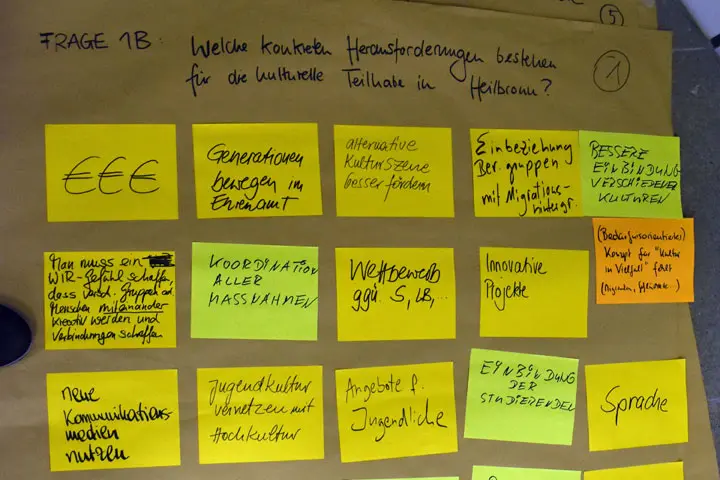 5
FRAGE 1B: Welche konkreten Herausforderungen bestehen
für die kulturelle Teilhabe in Heilbronn?
1
€€€
Generationen
bewegen im
Ehrenamt
alternative
Kulturszene
besser fördern
Einbeziehung
Bev. gruppen
mit Migrations-
hintergr.
BESSERE
EINBINDUNG
VERSCHIEDENER
KULTUREN
Man muss ein
WIR-Gefühl schaffen,
dass versch. Gruppen
Menschen miteinander
kreativ werden und
Verbindungen schaffen
KOORDINATION
ALLER
MASSNAHMEN
Wettbewerb
ggü. S, LB,...
Innovative
Projekte
(Bedarfsorientiertes)
Konzept für "Kultur
in Vielfalt" fehlt
neue
Kommunikations-
medien
nutzen
Jugendkultur
vernetzen mit
Hochkultur
Angebote f.
Jugendliche
EINBINDUNG
DER
STUDIERENDEN
Sprache